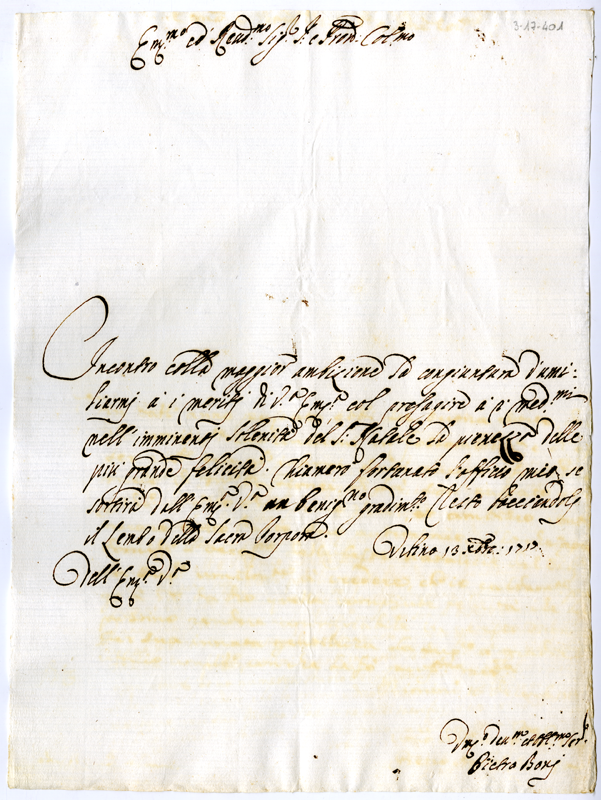 3-17-401
Em.mo ed Reud.mo Sig.r e Pron: Colmo
Incontro colla maggior ambizione la congiuntura d'umi-
liarmi a i meriti di V.a Em.a col presagire a i med.mi
nell'imminente Solenità del S. Natale la pienezza delle
più grande felicità. Chiamerò fortunato l'ufficio mio, se
sortirà dall'Em.a V.a un benig.mo gradim.to. Resto baccandole
il Lembo della Sacra Porpora.
Urbino 13 Xbre: 1717
Dell'Em.a V.a
Um.o Deu.mo et Obb.mo Ser.
Pietro Bonj